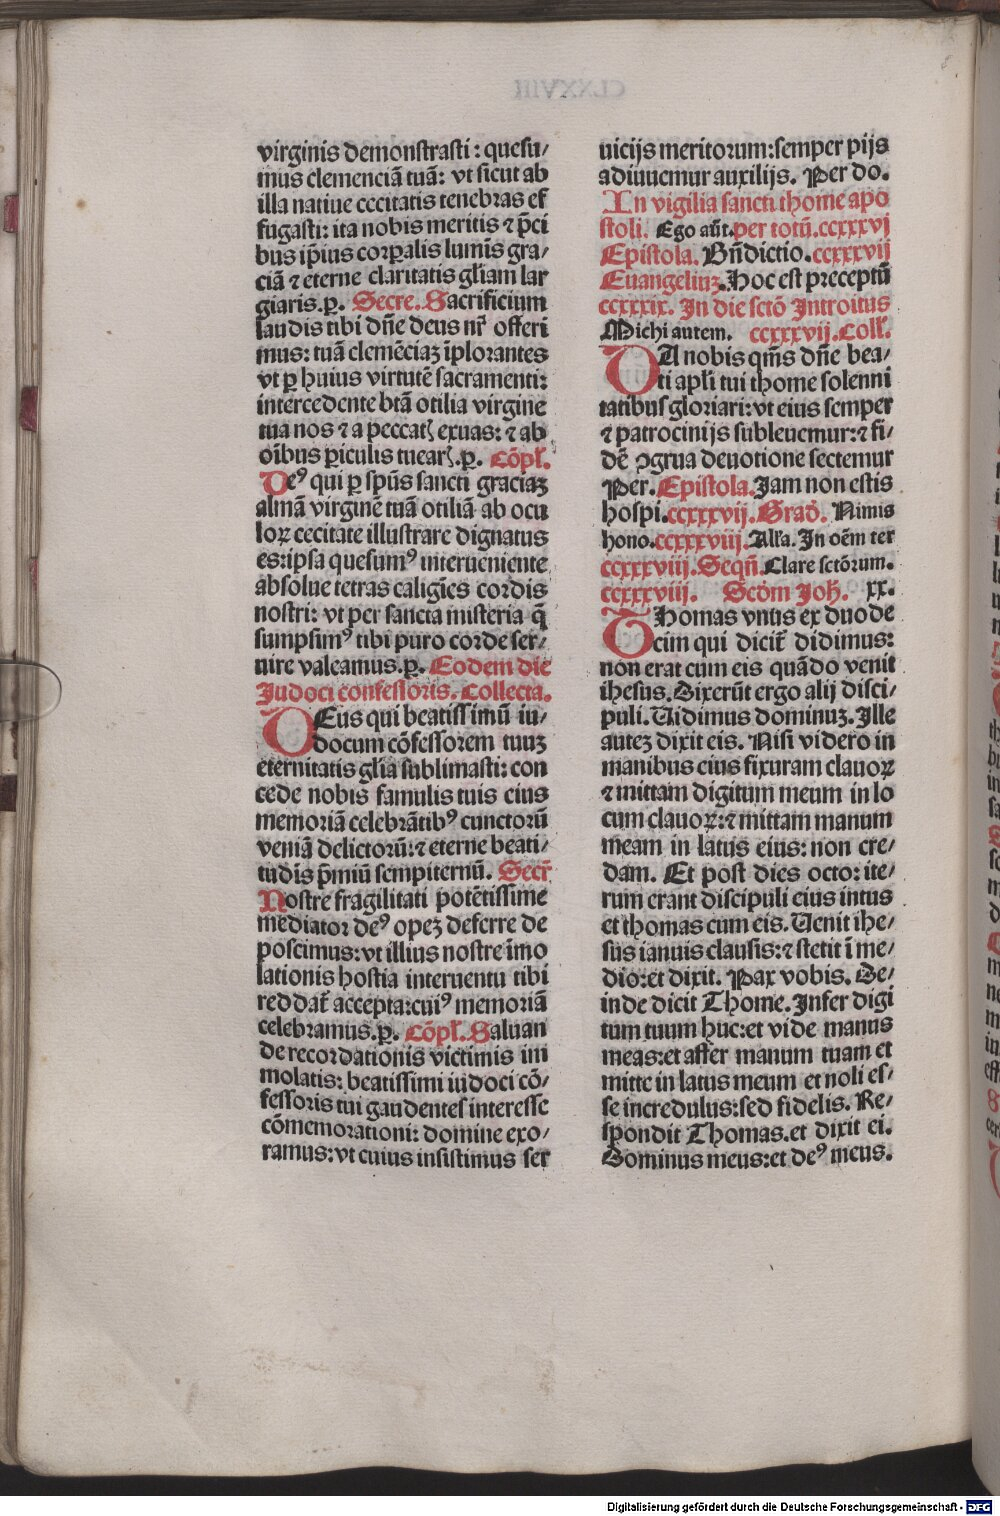 virginis demonstrasti : quesu/
mus clemenciā tuā: vt sicut ab
illa natiue cecitatis tenebras ef
fugasti: ita nobis meritis ⁊ p̄ci
bus ip̄ius corꝑalis lumīs gra/
ciā ⁊ eterne claritatis gl̄iam lar
giaris.ꝑ. Secre. Sacrificium
laudis tibi dn̄e deus nr̄ offeri
mus: tuā clemēciaꝫ īplorantes
vt ꝑ huius virtutē sacramenti:
intercedente btā otilia virgine
tua nos ⁊ a peccat᷎ exuas: ⁊ ab
oībus ꝑiculis tuear᷎.ꝑ. Cōpl̄.
Deꝰ qui ꝑ sp̄us sancti graciaꝫ
almā virginē tuā otiliā ab ocu
loꝝ cecitate illustrare dignatus
es:ipsa quesumꝰ interueniente
absolue tetras caligīes cordis
nostri: vt per sancta misteria q̄
sumpsimꝰ tibi puro corde ser/
uire valeamus.ꝑ. Eodem die
Judoci confessoris. Collecta.
DEus qui beatissimū iu/
docum cōfessorem tuuꝫ
eternitatis gl̄ia sublimasti: con
cede nobis famulis tuis eius
memoriā celebrātibꝰ cunctorū
veniā delictorū:⁊ eterne beati/
tudīs p̄miū sempiternū. Secr̄
Nostre fragilitati potētissime
mediator deꝰ opeꝫ deferre de
poscimus: vt illius nostre īmo
lationis hostia interuentu tibi
reddat᷑ accepta:cuiꝰ memoriā
celebramus.ꝑ. Cōpl̄. Saluan
de recordationis victimis im
molatis: beatissimi iudoci cō/
fessoris tui gaudentes interesse
cōmemorationi: domine exo/
ramus: vt cuius insistimus ser
uicijs meritorum:semper pijs
adiuuemur auxilijs. Per do.
In vigilia sancti thome apo
stoli. Ego aūt.per totū.ccxxxvj
Epistola. Bn̄dictio.ccxxxvij
Euangeliuꝫ.Hoc est preceptū
ccxxxix. In die sctō Introitus
Michi autem. ccxxxvij.Coll̄.
DA nobis qm̄s dn̄e bea/
ti apl̄i tui thome solenni
tatibus gloriari: vt eius semper
⁊ patrocinijs subleuemur:⁊ fi/
dē ꝯgrua deuotione sectemur
Per. Epistola. Jam non estis
hospi.ccxxxvij. Grad̄. Nimis
hono.ccxxxviij. All̄a. In oēm ter
ccxxxviij. Seqn̄.Clare sctōrum.
ccxxxviij. Scd̄m Joh̄. xx.
THomas vnus ex duode
cim qui dicit᷑ didimus:
non erat cum eis quādo venit
ihesus. Dixerūt ergo alij disci/
puli. Uidimus dominuꝫ. Ille
auteꝫ dixit eis. Nisi videro in
manibus eius fixuram clauoꝝ
⁊ mittam digitum meum in lo
cum clauoꝝ:⁊ mittam manum
meam in latus eius: non cre/
dam. Et post dies octo: ite/
rum erant discipuli eius intus
et thomas cum eis. Uenit ihe/
sus ianuis clausis:⁊ stetit ī me/
dio:et dixit. Pax vobis. De/
inde dicit Thome. Infer digi
tum tuum huc:et vide manus
meas:et affer manum tuam et
mitte in latus meum et noli es/
se incredulus:sed fidelis. Re/
spondit Thomas.et dixit ei.
Dominus meus:et deꝰ meus.
Digitalisierung gefördert durch die Deutsche Forschungsgemeinschaft - DFG